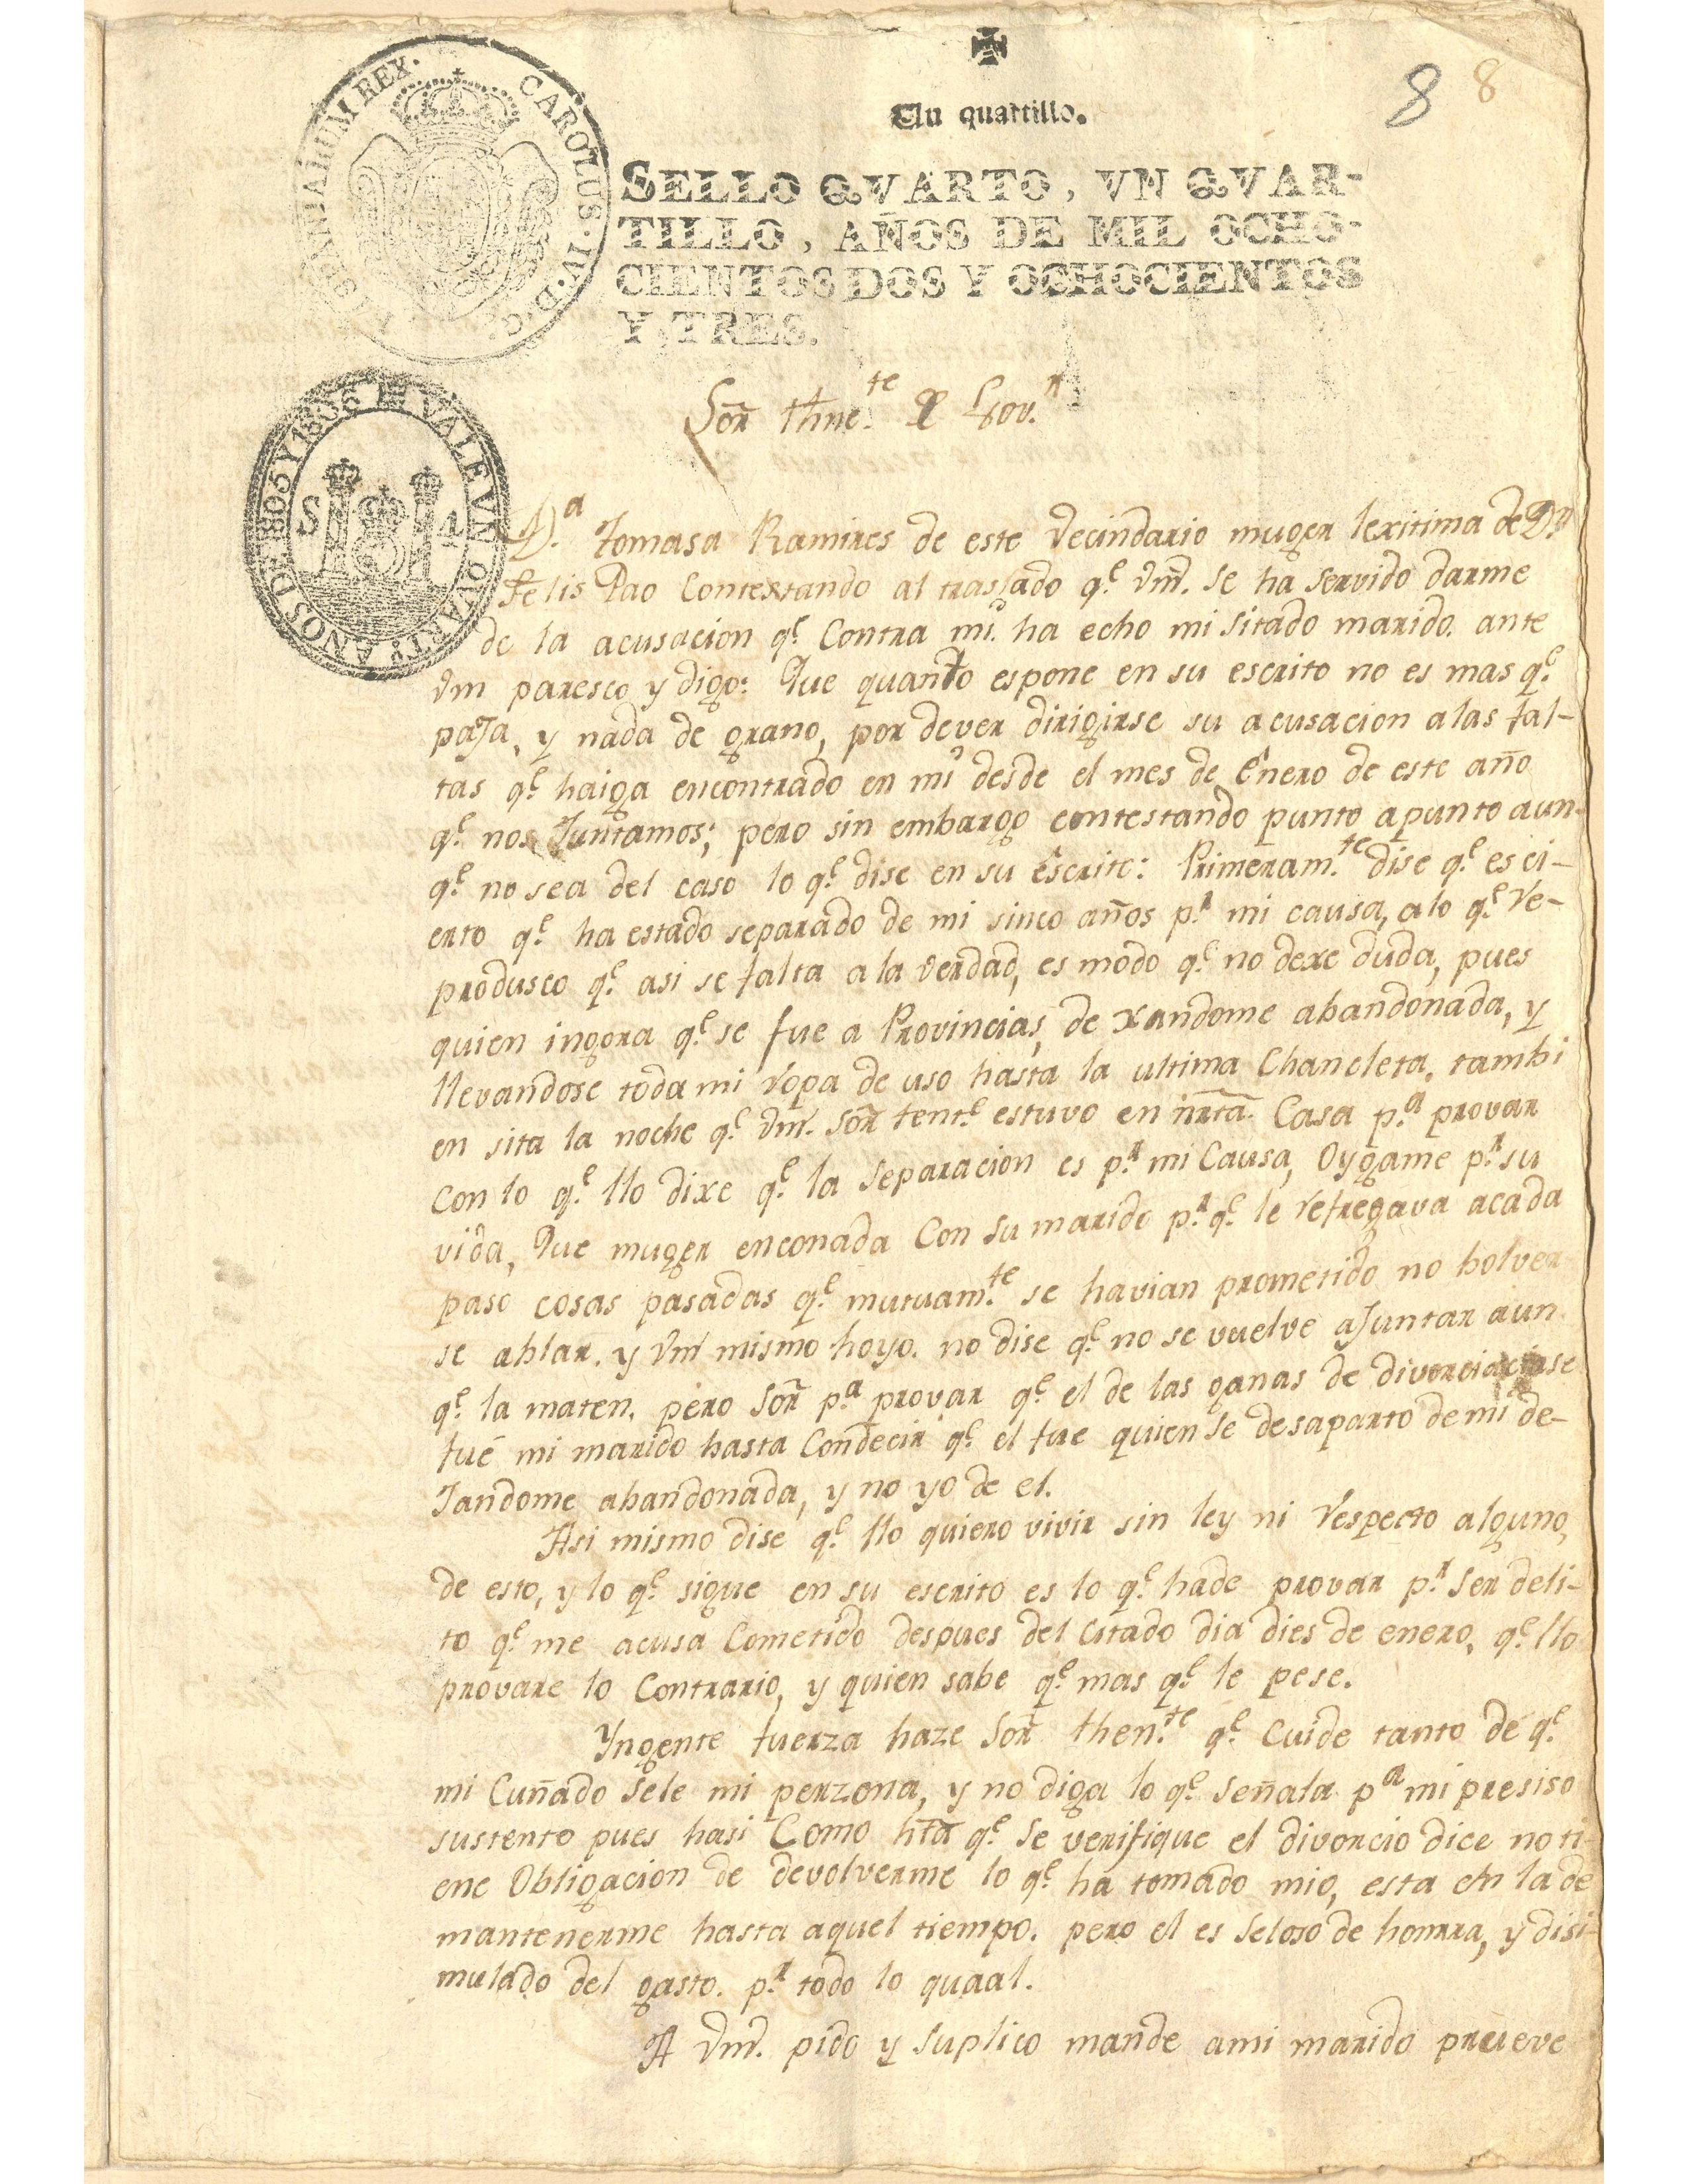 8 8
Un quartillo.
HISPANIARUM REX · CAROLUS · IV · D · G ·
SELLO QVARTO, VN QVAR-
TILLO, AÑOS DE MIL OCHO-
CIENTOS DOS Y OCHOCIENTOS
Y TRES.
VALE
AÑOS DE 1805 Y 1806
S 4
Sor. thne.te de Gov.r
D.a Tomasa Ramires de este Vecindario muger lexitima de D.n
Felis Pao Contextando al traslado q.e Vm. se ha servido darme
de la acusacion q.e Contra mi ha echo mi sitado marido. ante
Vm paresco y digo: Que quanto espone en su escrito no es mas q.e
paJa, y nada de grano, por dever dirigirse su acusacion a las fal-
tas q.e haiga encontrado en mi desde el mes de Enero de este año
q.e nos Juntamos; pero sin embargo contestando punto a punto aun-
q.e no sea del caso lo q.e dise en su escrito: Primeram.te dise q.e es ci-
erto q.e ha estado separado de mi sinco años p.r mi causa, a lo q.e Re-
produsco q.e asi se falta a la verdad, es modo q.e no dexe duda, pues
quien ingora q.e se fue a Provincias, de xandome abandonada, y
llevandose toda mi ropa de uso hasta la ultima Chancleta. tambi
en sita la noche q.e Vm. Sor tent.e estuvo en nrta. Casa p.a provar
con lo q.e llo dixe q.e la separacion es p.r mi Causa, Oygame p.r su
vida, Que muger enconada Con su marido p.r q.e le refregava a cada
paso cosas pasadas q.e mutuam.te se havian prometido no bolver
se ablar. y Vm mismo hoyo. no dise q.e no se vuelve aJuntar aun
q.e la maten. pero Sor p.a provar q.e el de las ganas de
fué mi marido hasta Condecir q.e el fue quien se desaparto de mi de-
Jandome abandonada, y no yo de el.
Asi mismo dise q.e llo quiero vivir sin ley ni respecto alguno,
de esto, y lo q.e sigue en su escrito es lo q.e hade provar p.r ser deli-
to q.e me acusa Cometido despues del citado dia dies de enero, q.e llo
provare lo Contrario, y quien sabe q.e mas q.e le pese.
Yngente fuerza haze Sor then.te q.e Cuide tanto de q.e
mi Cuñado sele mi perzona, y no diga lo q.e señala p.a mi presiso
sustento pues hasi Como hta q.e se verifique el divorcio dice no ti
ene Obligacion de devolverme lo q.e ha tomado mio, esta en la de
mantenerme hasta aquel tiempo. pero el es seloso de honrra, y disi-
mulado del gasto. p.r todo lo quaal.
A Vm. pido y suplico mande ami marido prueve